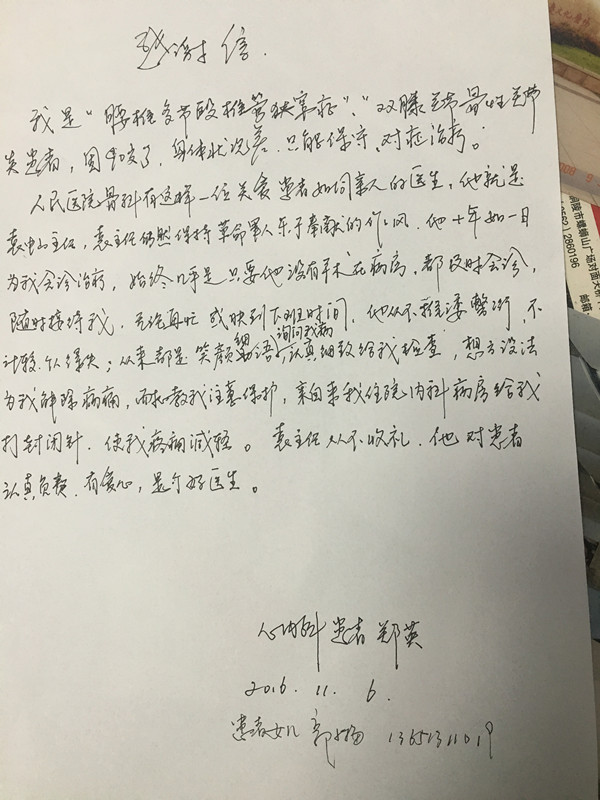 感谢信.
我是“腰椎多节段椎管狭窄症”、“双膝关节骨性关节
炎患者,因 身体状况差.只能保守、对症治疗。
人民医院骨科有这样一位关爱患者如同亲人的医生,他就是
袁中山主任,袁主任仍然保持革命军人乐于奉献的作风.他十年如一日
为我会诊治疗,始终 是只要他没有手术在病房,都及时会诊,
随时接待我.无论再忙或快到下班时间,他从不 ,不
计较个人得失;从来都是笑颜细语,询问我病 认真细致给我检查,想方设法
为我解除病痛,而且教我注意保护,亲自来我住院内科病房给我
打封闭针.使我疼痛减轻。袁主任从不收礼.他对患者
认真负责.有爱心,是个好医生。
心内科 患者 郑英
2016. 11. 6.
患者女儿 郭杨 13651311019
2860196